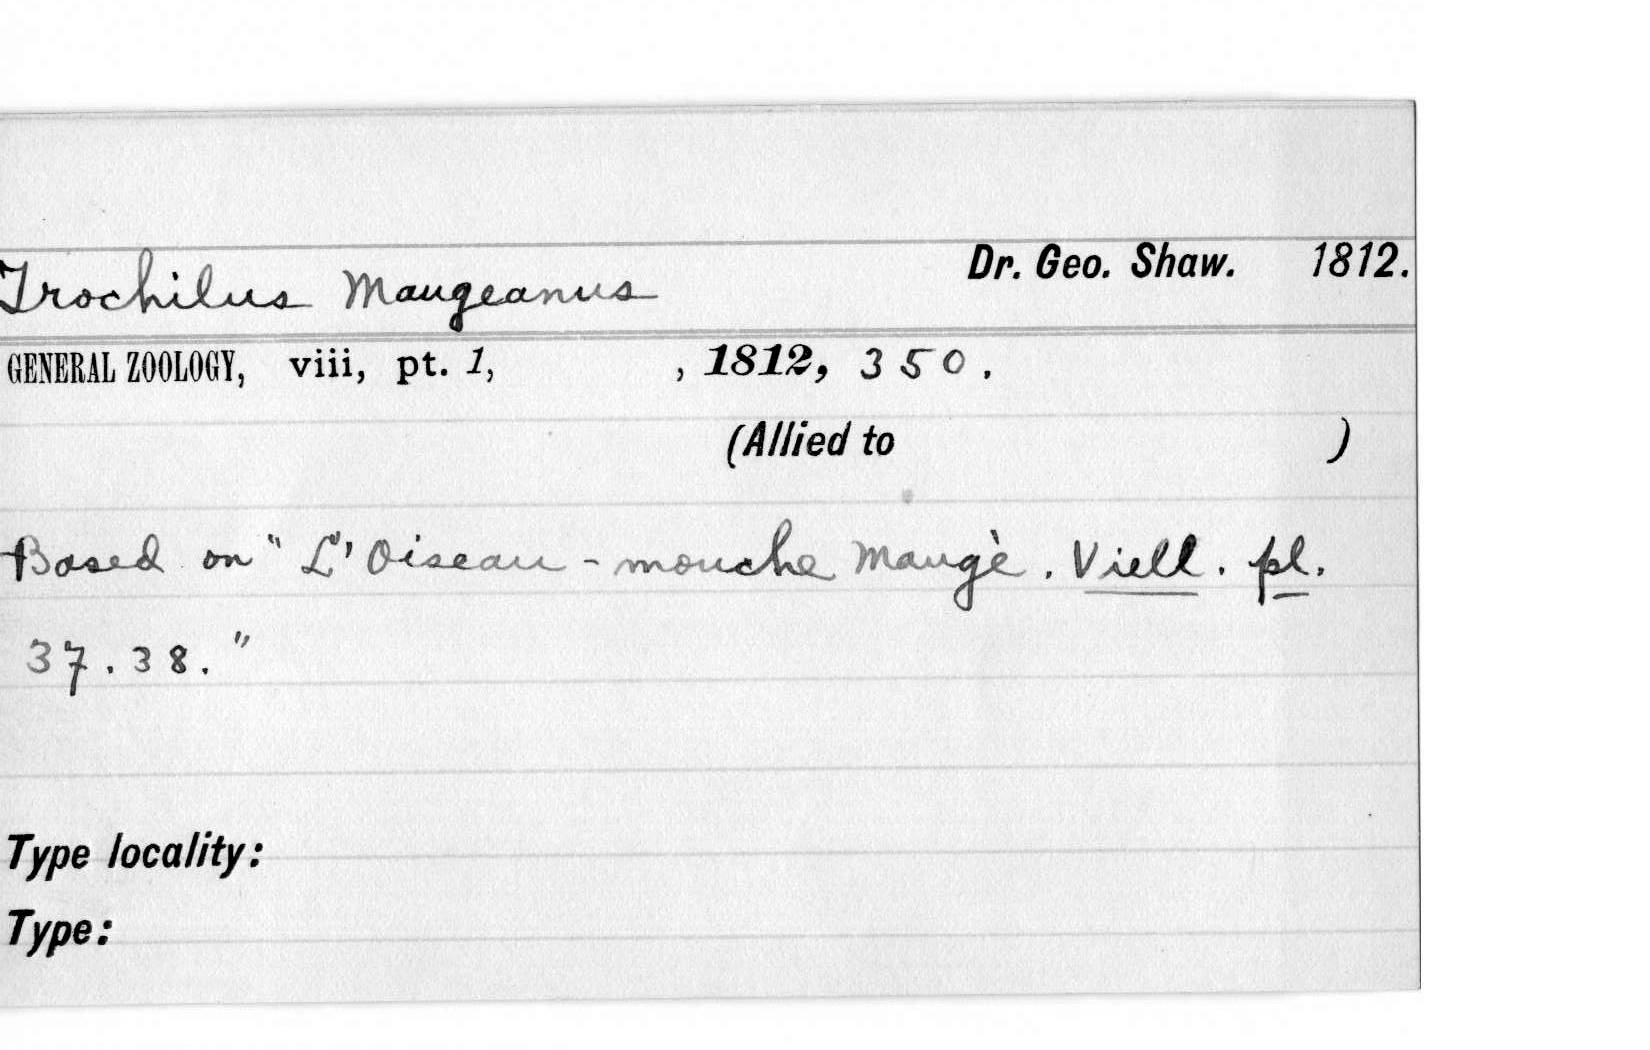 Trochilus Maugeanus Dr. Geo. Shaw. 1812.
GENERAL ZOOLOGY, viii, pt. 1, , 1812, 350.
(Allied to )
Based on "L'Oiseau-mouche Maugè. Viell. pl.
37.38."
Type locality:
Type: